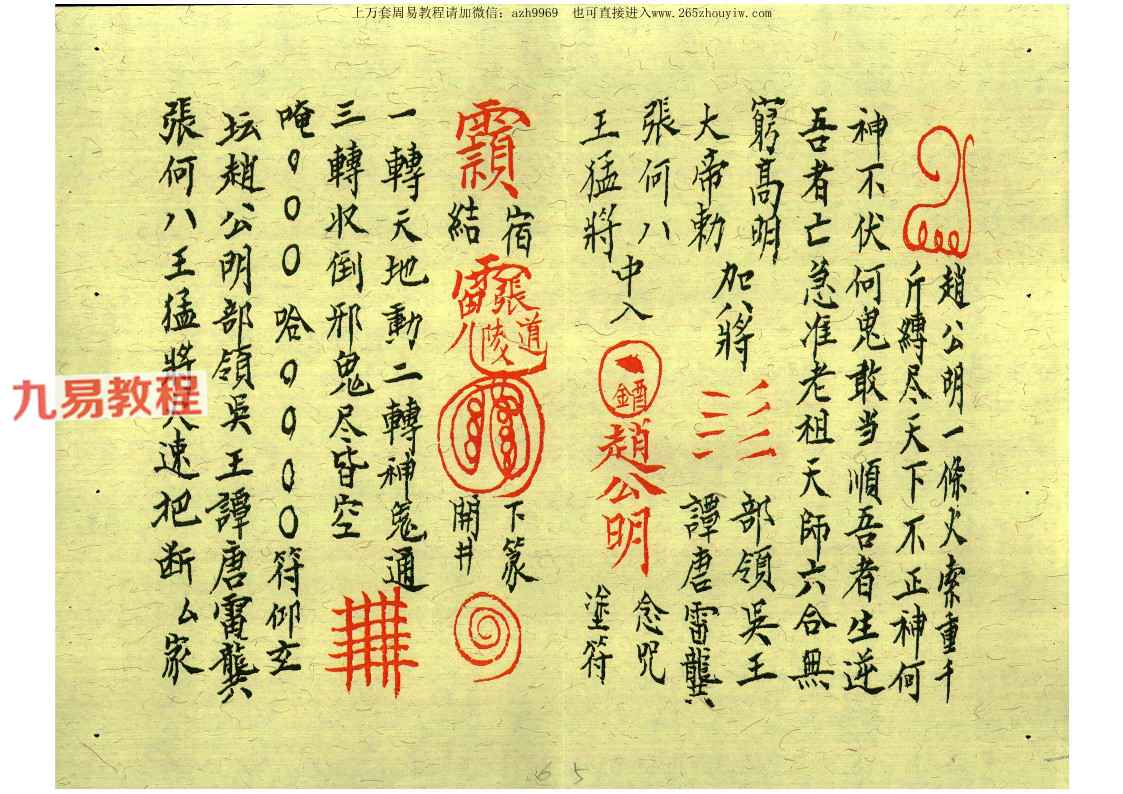 上万套周易教程请加微信：azh9969 也可直接进入www.265zhouyiw.com
趙公明一條火索重千
斤縛尽天下不正神何
神不伏何鬼敢当順吾者生逆
吾者亡急准老祖天師六合無
窮高明
大帝勅
加八將
部領吳王
譚唐雷龔
張何八
王猛將
中入
趙公明
念咒
塗符
宿
結
張道陵
下篆
開井
一轉天地動二轉神鬼通
三轉收倒邪鬼尽昏空
唵 哈 符仰玄
坛趙公明部領吳王譚唐雷龔
張何八王猛將 速把断厶家
九易教程
65